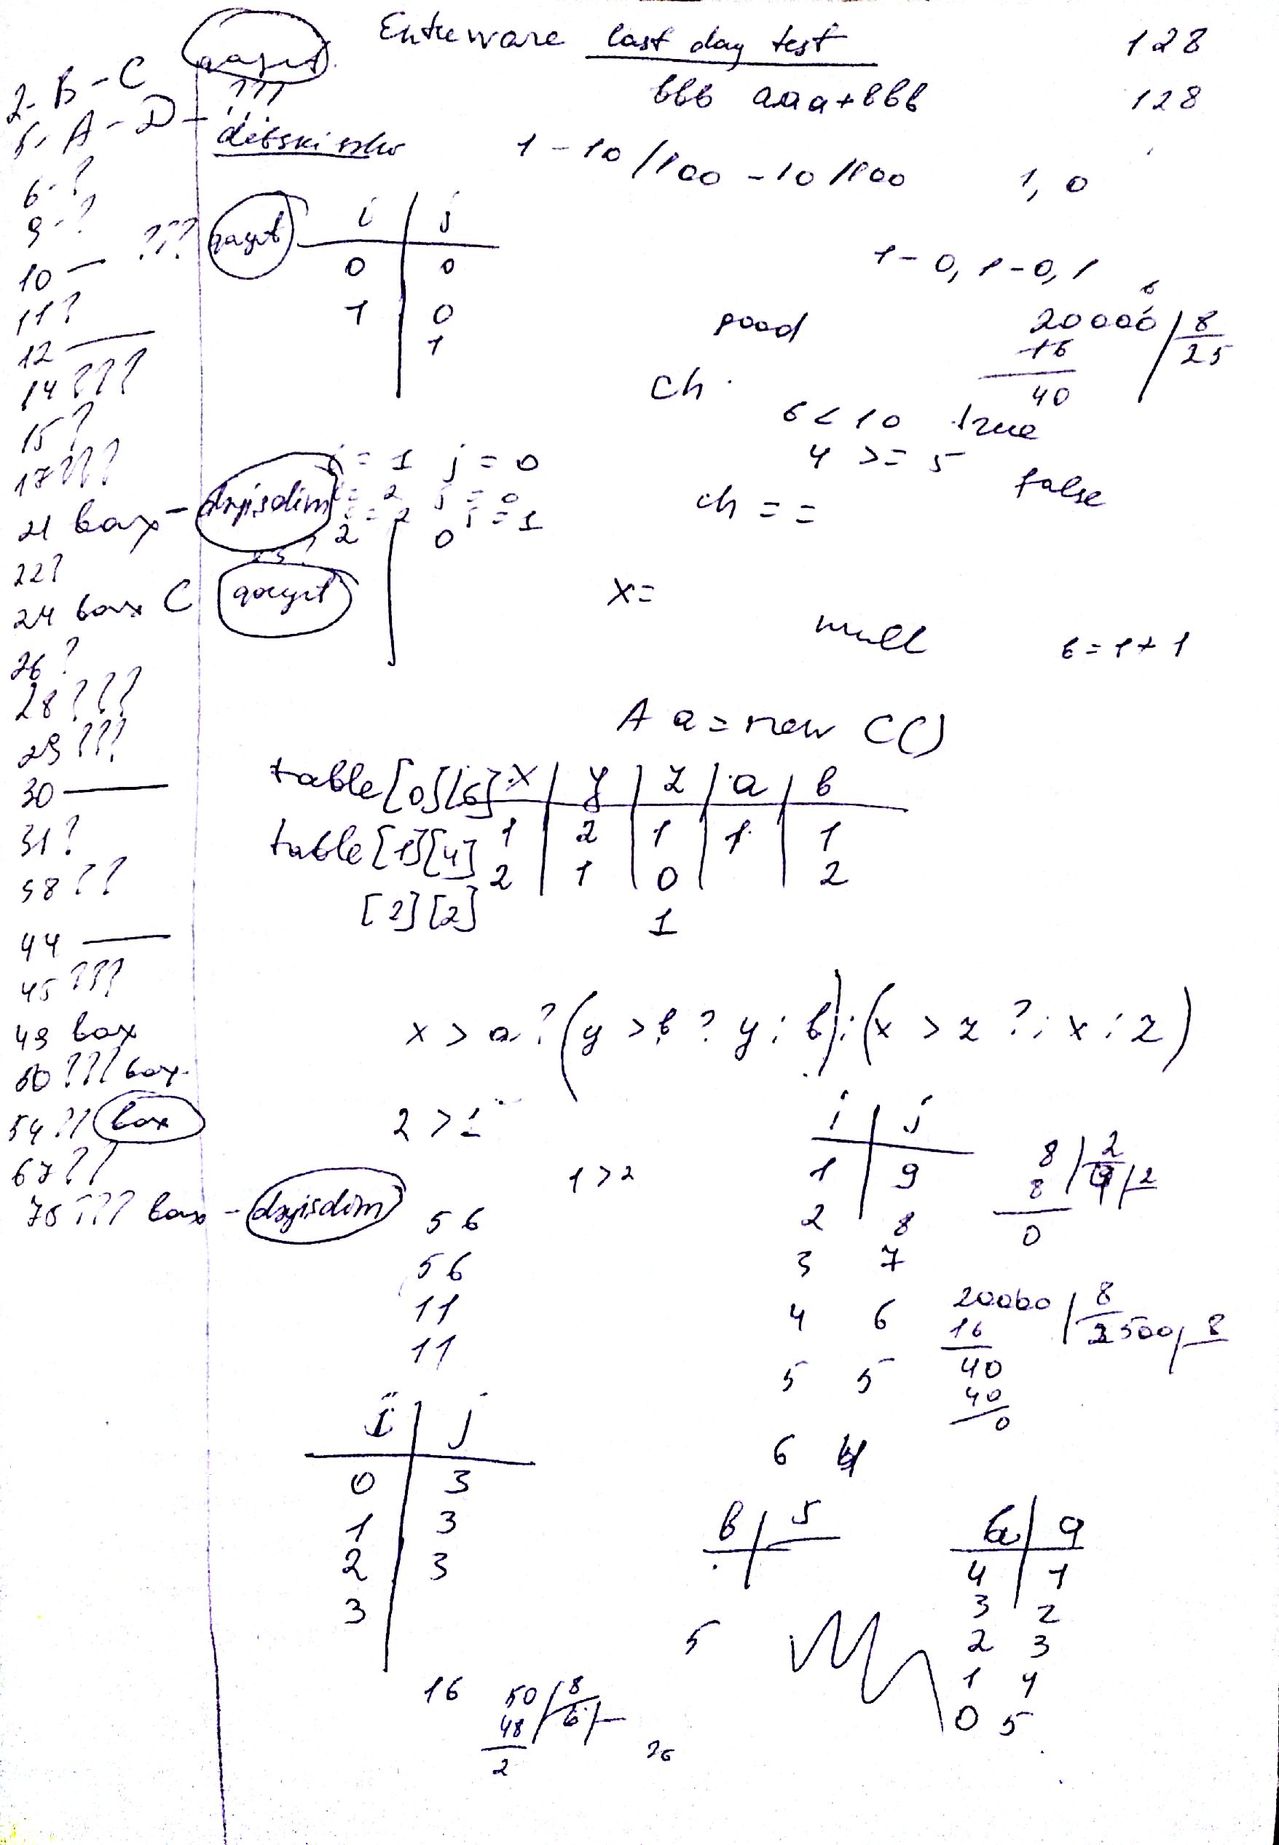 qayıt
Entuware last day test
128
bbb aaa+bbb
128
2- B - C
5, A - D - ???
6-?
9-?
10 — ??? qayıt
11?
12 —
14???
15?
17???
21 bax - dəyişdim
22?
24 bax C qayıt
26?
28???
29???
30 —
31?
38??
44 —
45???
49 bax
50??? bax
54?? bax
67??
78??? bax - dəyişdim
1 - 10/100 - 10/100
1, 0
i | j
0 | 0
1 | 0
1
1 - 0, 1 - 0, 1
good
20000 | 8
16 | 25
40
ch
6 < 10 true
4 >= 5 false
i = 1 j = 0
i = 2 j = 0
i = 2 j = 1
2 0
ch = =
x =
null
b = 1 + 1
A a = new C()
table [0][6]
table [1][4]
[2][2]
x | y | z | a | b
1 | 2 | 1 | 1 | 1
2 | 1 | 0 | | 2
1
x > a ? (y > b ? y : b) : (x > z ? : x : z)
2 > 1
1 > 2
56
56
11
11
i | j
1 | 9
2 | 8
3 7
4 6
5 5
6 4
8 | 2
8 | 4 | 2
0
20000 | 8
16 | 2500 | 8
40
40
0
i | j
0 | 3
1 | 3
2 | 3
3
b | 5
5
a | 9
4 | 1
3 | 2
2 3
1 4
0 5
16
50 | 8
48 | 6
2
26